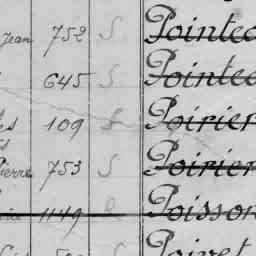 Jean 752 S Pointe
645 S Pointe
109 S Poirier
Pierre 753 S Poirier
1149 Poisson
Poivet